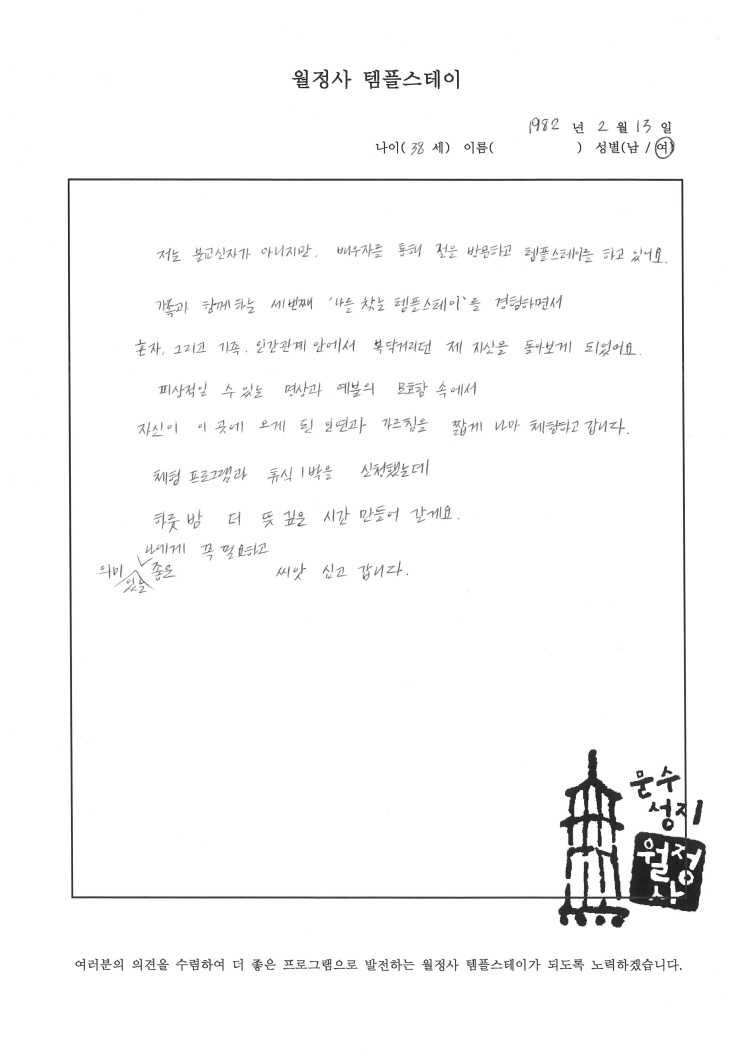 월정사 템플스테이
1982 년 2 월 13 일
나이( 38 세) 이름( ) 성별(남 / 여)
저는 불교신자가 아니지만, 배우자를 통해 절을 방문하고 템플스테이를 하고 있어요.
가족과 함께하는 세번째 '나를 찾는 템플스테이'를 경험하면서
혼자, 그리고 가족. 인간관계 안에서 북닥거리던 제 자신을 돌아보게 되었어요.
피상적일 수 있는 명상과 예불의 모호함 속에서
자신이 이 곳에 오게 된 인연과 가르침을 짧게 나마 체험하고 갑니다.
체험 프로그램과 휴식 1박을 신청했는데
하룻 밤 더 뜻 깊은 시간 만들어 갈게요.
나에게 꼭 필요하고
의미 있는 좋은 씨앗 심고 갑니다.
문수
성지
월정
사
여러분의 의견을 수렴하여 더 좋은 프로그램으로 발전하는 월정사 템플스테이가 되도록 노력하겠습니다.